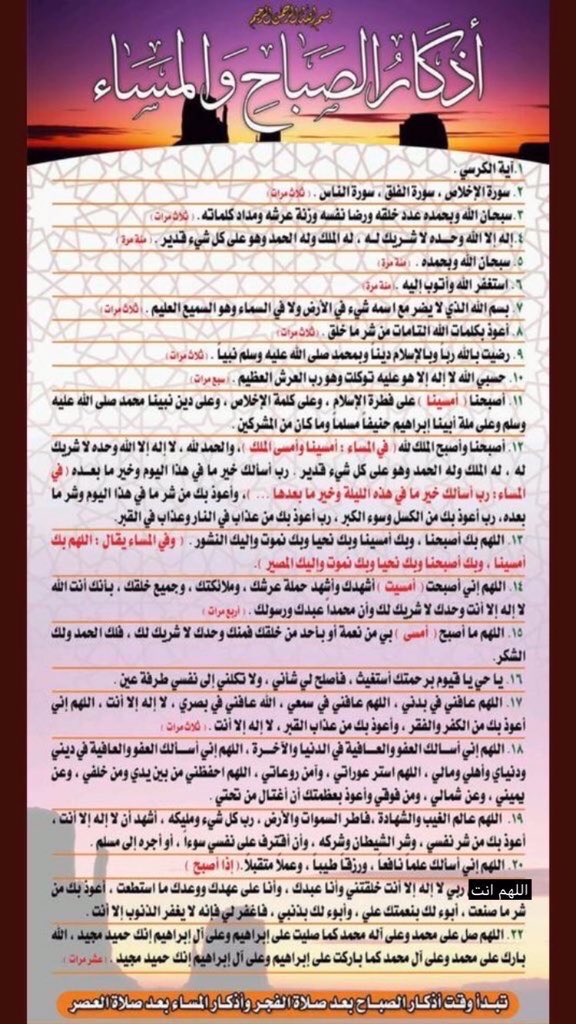 بسم الله الرحمن الرحيم
أذكار الصباح والمساء
١.آية الكرسي .
٢. سورة الإخلاص ، سورة الفلق ، سورة الناس . ( ثلاث مرات )
٣. سبحان الله وبحمده عدد خلقه ورضا نفسه وزنة عرشه ومداد كلماته . ( ثلاث مرات )
٤.إله إلا الله وحده لا شريك له ، له الملك وله الحمد وهو على كل شيء قدير . ( مئة مرة )
٥. سبحان الله وبحمده . ( مئة مرة )
٦. استغفر الله وأتوب إليه . ( مئة مرة )
٧. بسم الله الذي لا يضر مع اسمه شيء في الأرض ولا في السماء وهو السميع العليم . ( ثلاث مرات )
٨. أعوذ بكلمات الله التامات من شر ما خلق . ( ثلاث مرات )
٩. رضيت بالله ربا وبالإسلام دينا وبمحمد صلى الله عليه وسلم نبياً . ( ثلاث مرات )
١٠. حسبي الله لا إله إلا هو عليه توكلت وهو رب العرش العظيم . ( سبع مرات )
١١. أصبحنا ( أمسينا ) على فطرة الإسلام ، وعلى كلمة الإخلاص ، وعلى دين نبينا محمد صلى الله عليه
وسلم وعلى ملة أبينا إبراهيم حنيفاً مسلماً وما كان من المشركين .
١٢. أصبحنا وأصبح الملك لله ( في المساء : أمسينا وأمسى الملك ) ، والحمد لله ، لا إله إلا الله وحده لا شريك
له ، له الملك وله الحمد وهو على كل شيء قدير . رب أسألك خير ما في هذا اليوم وخير ما بعده ( في
المساء : رب أسألك خير ما في هذه الليلة وخير ما بعدها ... ) ، وأعوذ بك من شر ما في هذا اليوم وشر ما
بعده ، رب أعوذ بك من الكسل وسوء الكبر ، رب أعوذ بك من عذاب في النار وعذاب في القبر.
١٣. اللهم بك أصبحنا ، وبك أمسينا وبك نحيا وبك نموت وإليك النشور . ( وفي المساء يقال : اللهم بك
أمسينا ، وبك أصبحنا وبك نحيا وبك نموت وإليك المصير ).
١٤. اللهم إني أصبحت ( أمسيت ) أشهدك وأشهد حملة عرشك ، وملائكتك ، وجميع خلقك ، بأنك أنت الله
لا إله إلا أنت وحدك لا شريك لك وأن محمداً عبدك ورسولك . ( أربع مرات )
١٥. اللهم ما أصبح ( أمسى ) بي من نعمة أو بأحد من خلقك فمنك وحدك لا شريك لك ، فلك الحمد ولك
الشكر.
١٦. يا حي يا قيوم برحمتك أستغيث ، فأصلح لي شأني ، ولا تكلني إلى نفسي طرفة عين .
١٧. اللهم عافني في بدني ، اللهم عافني في سمعي ، الله عافني في بصري ، لا إله إلا أنت ، اللهم إني
أعوذ بك من الكفر والفقر ، وأعوذ بك من عذاب القبر ، لا إله إلا أنت . ( ثلاث مرات )
١٨. اللهم إني أسالك العفو والعافية في الدنيا والآخرة ، اللهم إني أسألك العفو والعافية في ديني
ودنياي وأهلي ومالي ، اللهم استر عوراتي ، وآمن روعاتي ، اللهم احفظني من بين يدي ومن خلفي ، وعن
يميني ، وعن شمالي ، ومن فوقي وأعوذ بعظمتك أن أغتال من تحتي .
١٩. اللهم عالم الغيب والشهادة ، فاطر السموات والأرض ، رب كل شيء ومليكه ، أشهد أن لا إله إلا أنت ،
أعوذ بك من شر نفسي ، وشر الشيطان وشركه ، وأن أقترف على نفسي سوءا ، أو أجره إلى مسلم .
٢٠. اللهم إني أسألك علما نافعا ، ورزقا طيبا ، وعملاً متقبلا. ( إذا أصبح )
اللهم انت ربي لا إله إلا أنت خلقتني وأنا عبدك ، وأنا على عهدك ووعدك ما استطعت ، أعوذ بك من
شر ما صنعت ، أبوء لك بنعمتك علي ، وأبوء لك بذنبي ، فاغفر لي فإنه لا يغفر الذنوب إلا أنت .
٢٢. اللهم صل على محمد وعلى آله محمد كما صليت على إبراهيم وعلى آل إبراهيم إنك حميد مجيد ، الله
بارك على محمد وعلى آل محمد كما باركت على إبراهيم وعلى آل إبراهيم إنك حميد مجيد . ( عشر مرات )
تبدأ وقت أذكار الصباح بعد صلاة الفجر وأذكار المساء بعد صلاة العصر